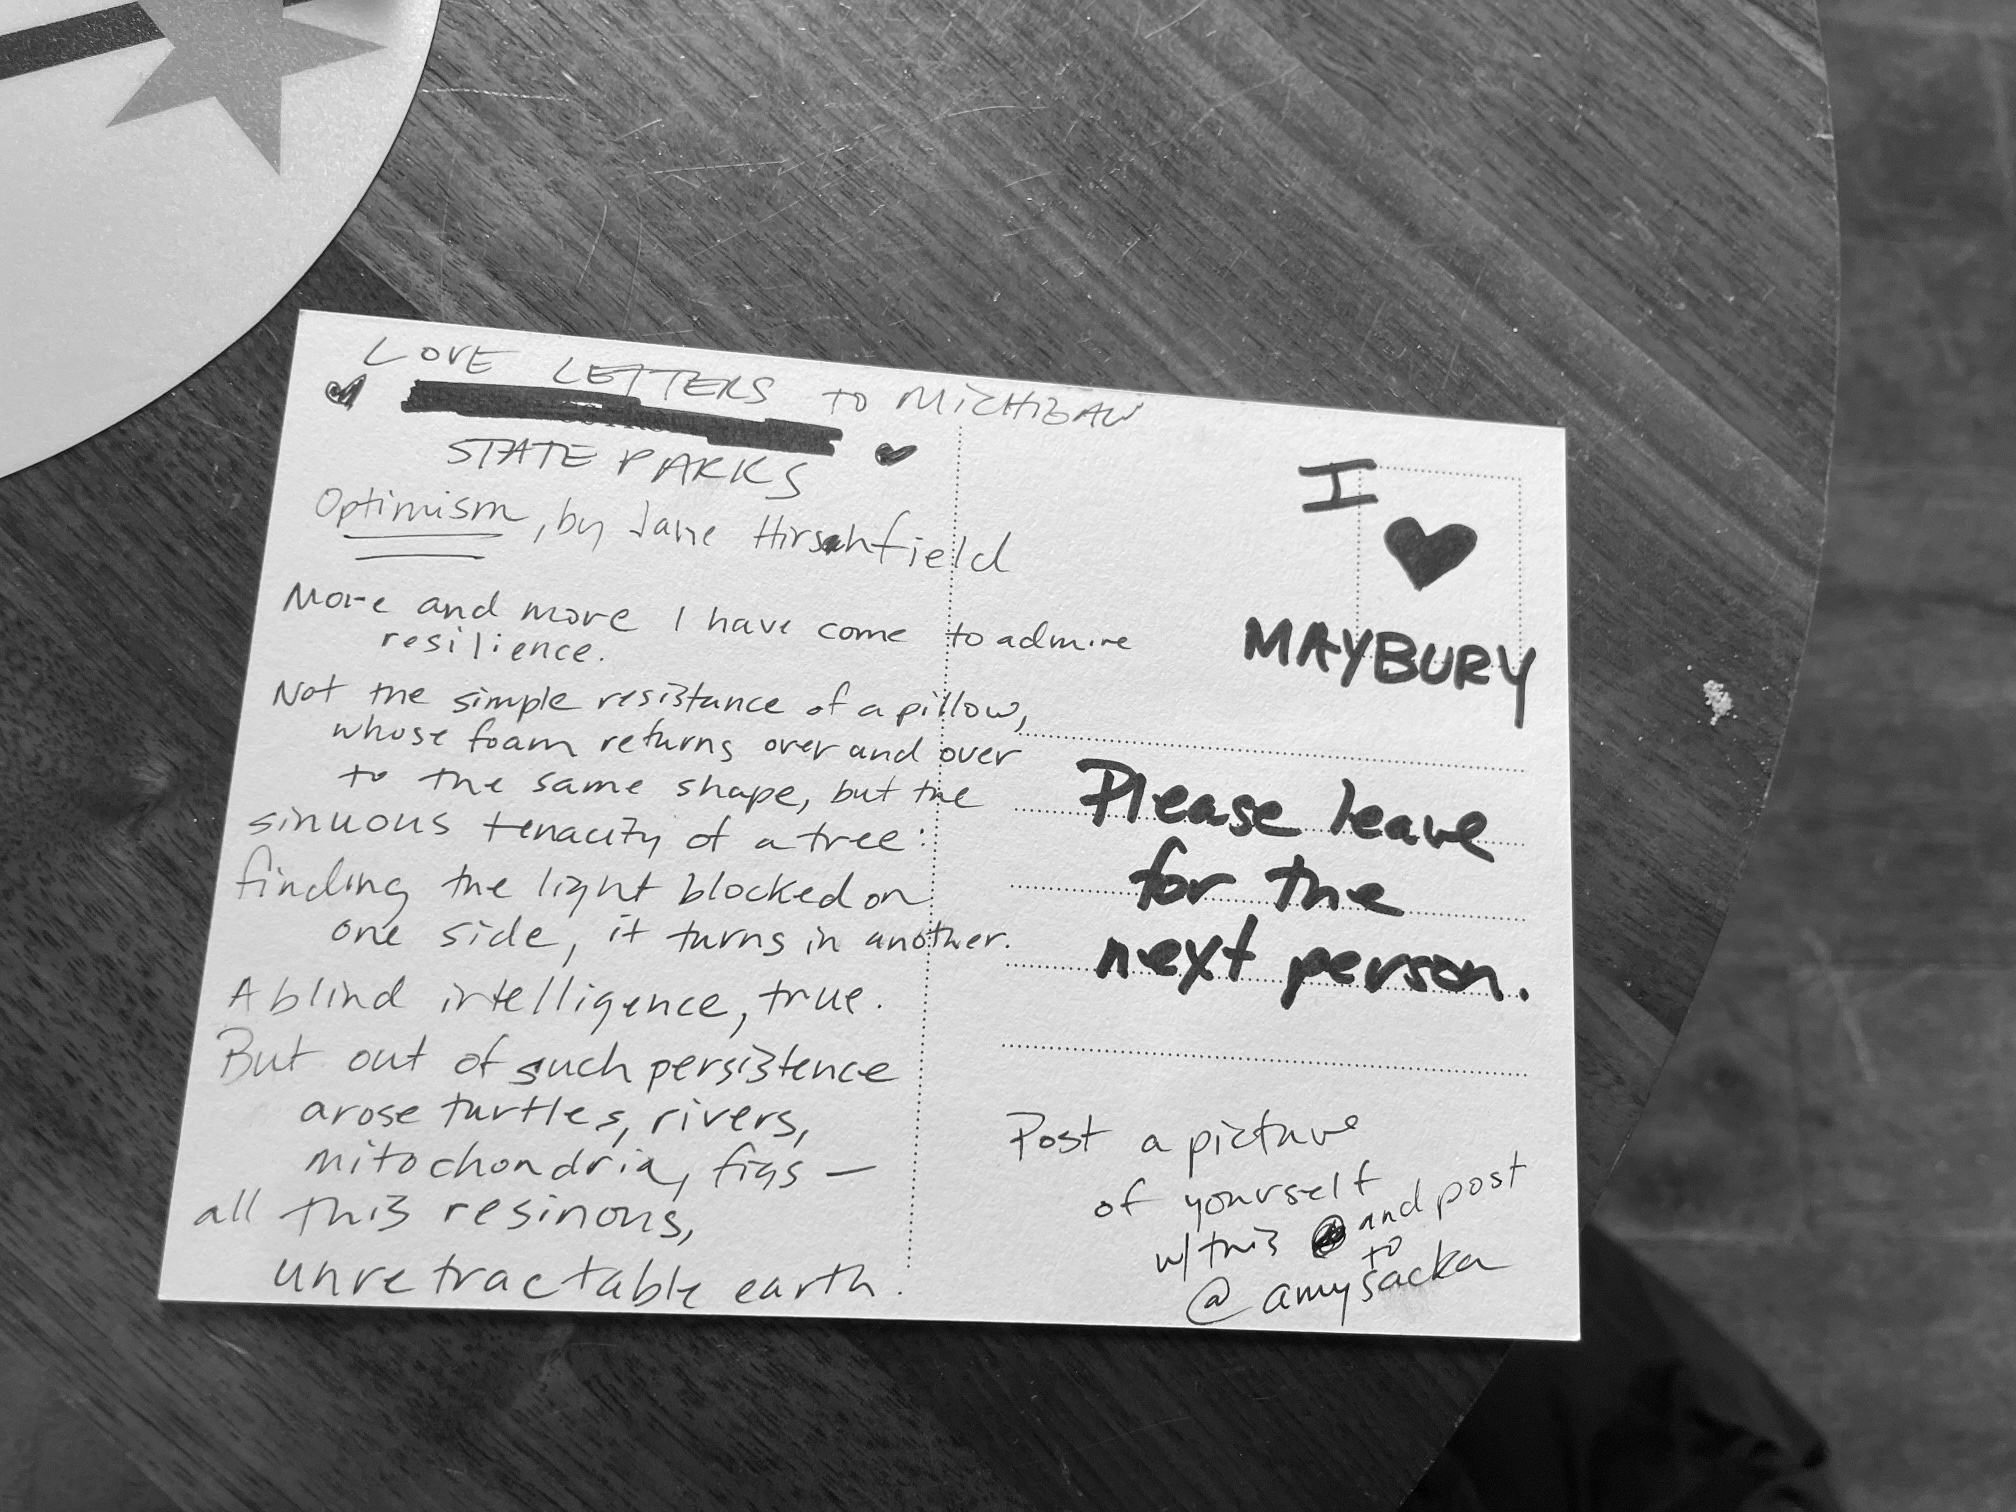 LOVE LETTERS TO MICHIGAN
STATE PARKS
Optimism, by Jane Hirschfield
More and more I have come to admire
resilience.
Not the simple resistance of a pillow,
whose foam returns over and over
to the same shape, but the
sinuous tenacity of a tree:
finding the light blocked on
one side, it turns in another.
A blind intelligence, true.
But out of such persistence
arose turtles, rivers,
mitochondria, figs —
all this resinous,
unretractable earth.
I
♥
MAYBURY
Please leave
for the
next person.
Post a picture
of yourself
w/ this and post
to
@amysacka